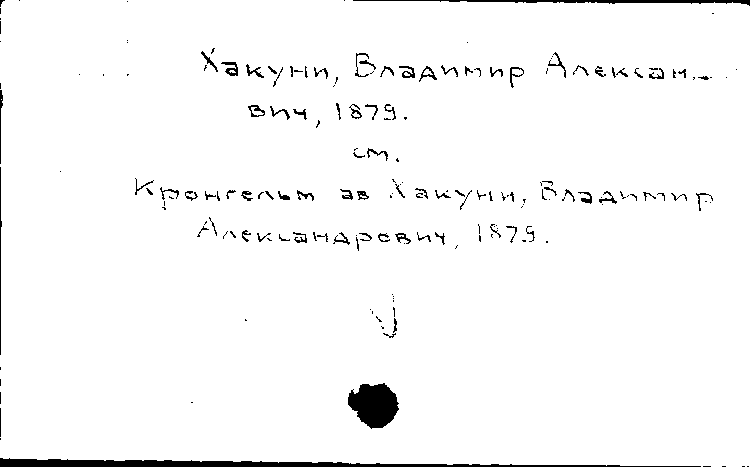 Хакуни, Владимир Алексан-
вич, 1879.
см.
Кронгельм ав Хакуни, Владимир
Александрович, 1879.